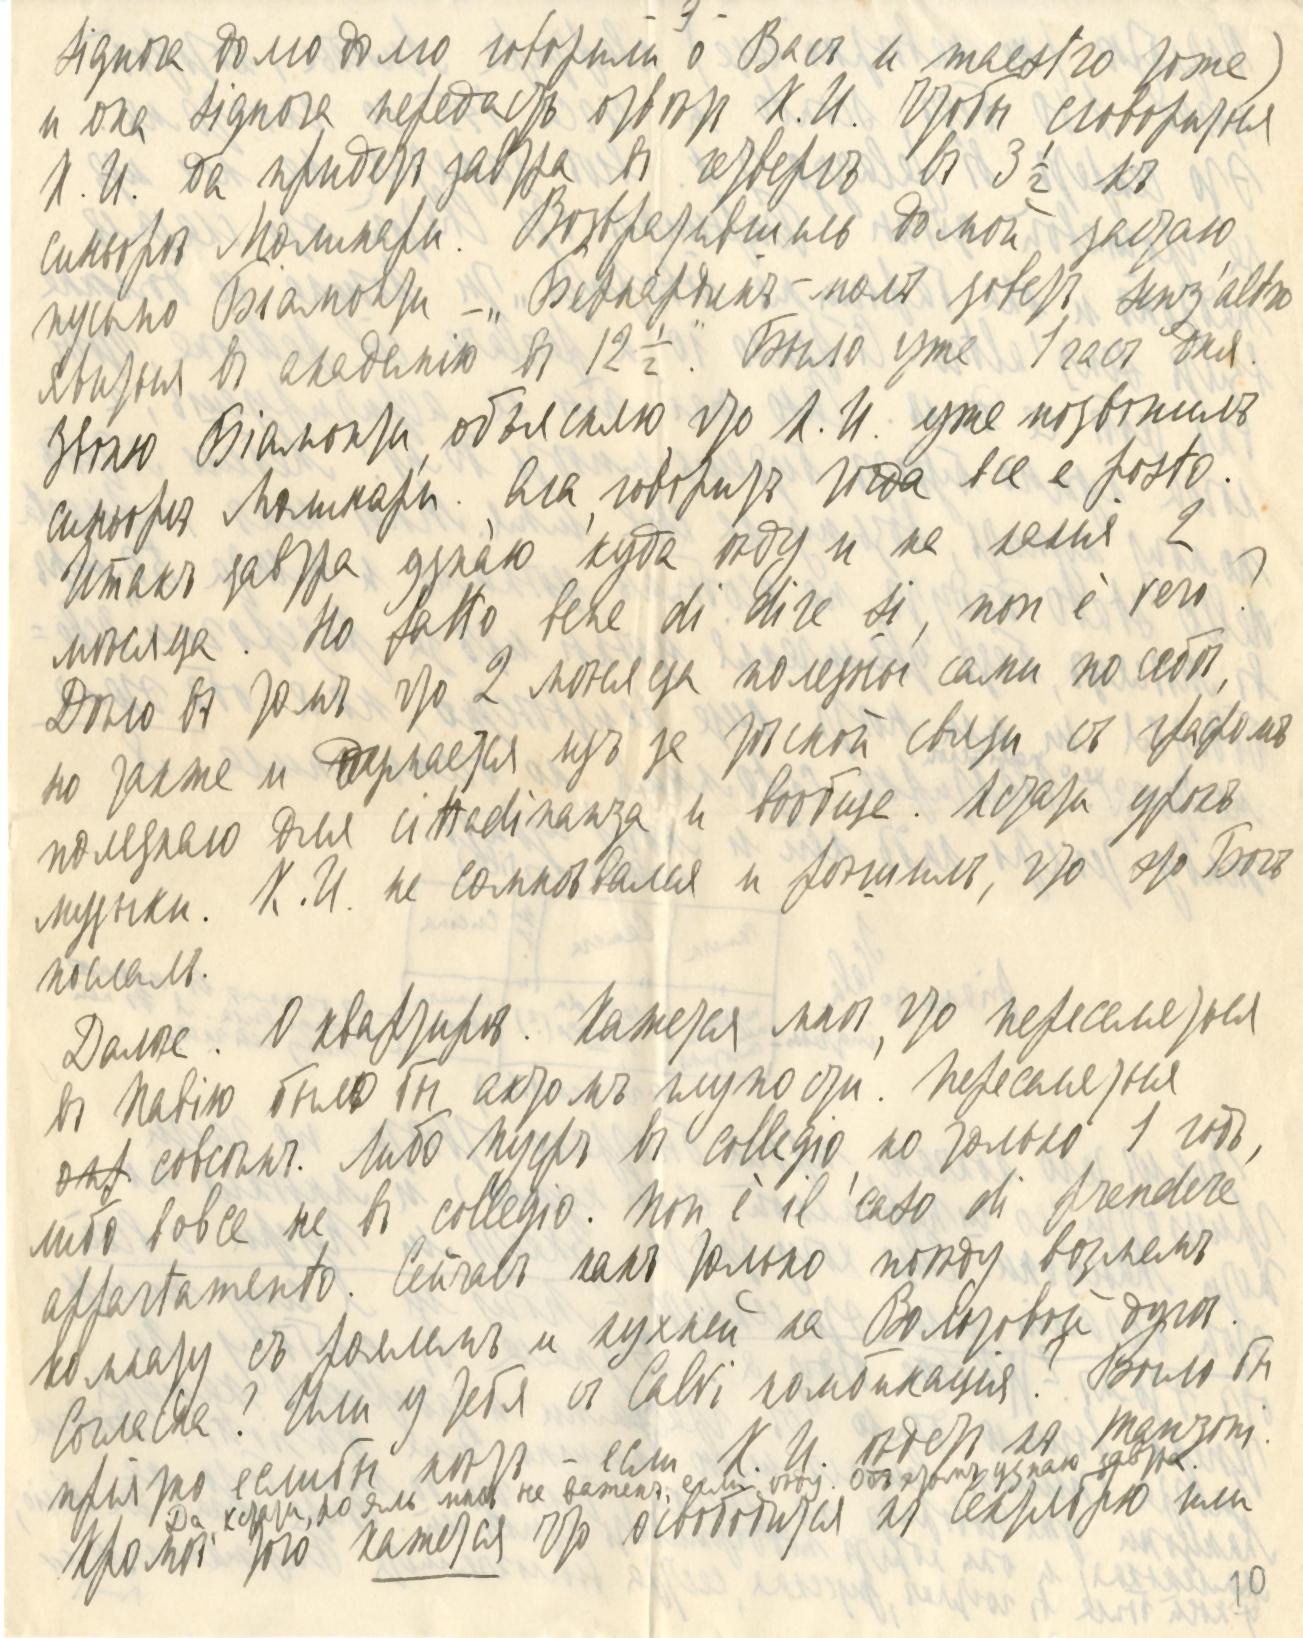 - 9 -
Signora долго долго говорили о Васъ и maestro тоже)
и она signora передастъ отвѣтъ К.И. чтобы сговориться
К.И. да придетъ завтра въ четвергъ въ 3 1/2 къ
синьорѣ Молинари. Возвратившись домой, застаю
письмо Біамонти – „Бернардинъ-полъ зоветъ senz'altro
явиться въ академію въ 12 1/2". Было уже 1 часъ дня.
Звоню Біамонти, объясняю что К.И. уже позвонилъ
синьорѣ Молинари. Ага, говоритъ тогда все е posto.
Итакъ завтра узнаю куда ѣду и на какія 2
мѣсяца. Но fatto bene di dire si, non è vero?
Дѣло въ томъ что 2 мѣсяца полезны сами по себѣ,
но также и думается изъ за тѣсной связи съ графомъ
полезнаю для cittadinanza и вообще. Кстати урокъ
музыки. К.И. не сомнѣвался и рѣшилъ, что это Богъ
послалъ.
Далѣе. О квартирѣ. Кажется мнѣ, что переселяться
въ Павію было бы актомъ глупости. Переселяться
совсѣмъ. Либо пусть въ collegio, но только 1 годъ,
либо вовсе не въ collegio. Non è il caso di prendere
appartamento. Сейчасъ какъ только поѣду возьмемъ
комнату съ роялемъ и кухней на Вольтовой дугѣ.
Согласна? Или у тебя съ Calvi комбинація? Было бы
пріятно еслибы нѣтъ – если К.И. ѣдетъ къ Manzoni.
Да, кстати, рояль мнѣ не важенъ, если ѣду. Объ этомъ узнаю завтра.
Кромѣ того кажется что освободится къ сентябрю или
10